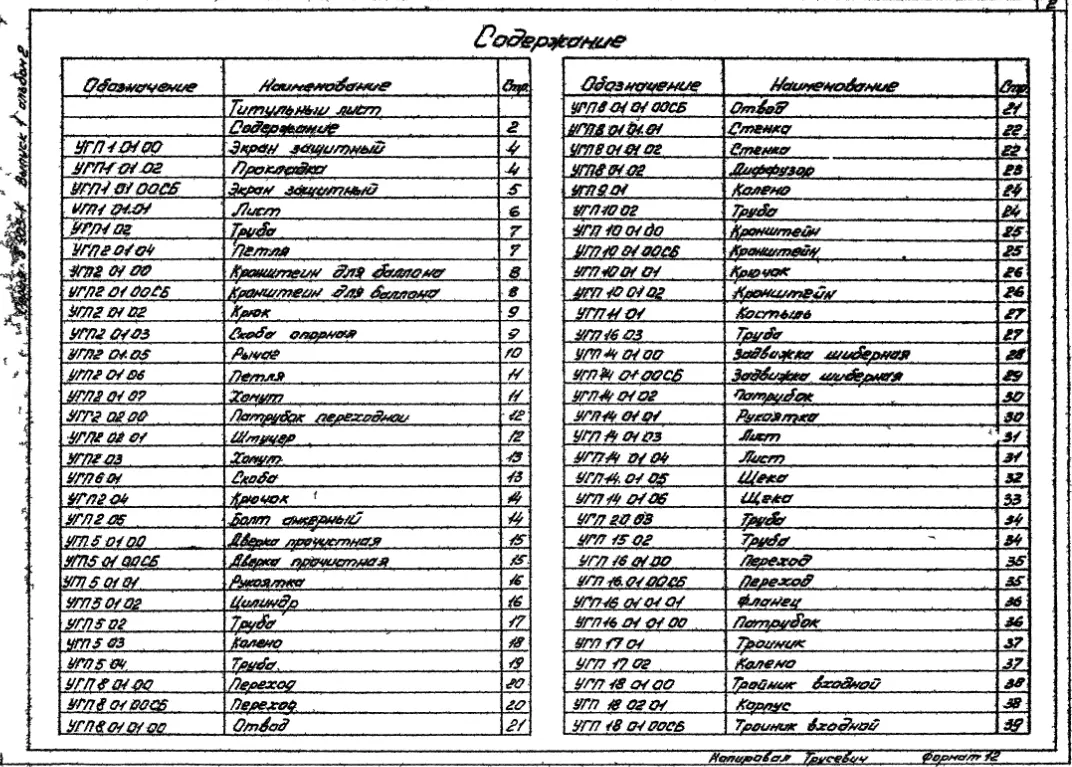 2
Содержание
Обозначение Наименование Стр.
Титульный лист
Содержание 2
УГП1.01.00 Экран защитный 4
УГП1 01.02 Прокладка 4
УГП1 01 00СБ Экран защитный 5
УГП1 01.01 Лист 6
УГП1 02 Труба 7
УГП2 01 04 Петля 7
УГП2 01 00 Кронштеин для баллона 8
УГП2 01 00СБ Кронштеин для баллона 8
УГП2 01 02 Крюк 9
УГП2 01 03 Скоба опорная 9
УГП2 01.05 Рычаг 10
УГП2 01 06 Петля 11
УГП2 01 07 Хомут 11
УГП2 02 00 Патрубок переходной 12
УГП2 02 01 Штуцер 12
УГП2 03 Хомут 13
УГП6 01 Скоба 13
УГП2 04 Крючок 14
УГП2 05 Болт анкерный 14
УГП.5 01 00 Дверка прочистная 15
УГП5 01 00СБ Дверка прочистная 15
УГП 5 01 01 Рукоятка 16
УГП5 01 02 Цилиндр 16
УГП5 02 Труба 17
УГП5 03 Колено 18
УГП5 04 Труба 19
УГП8 01 00 Переход 20
УГП8 01 00СБ Переход 20
УГП8.01 01 00 Отвод 21
Обозначение Наименование Стр.
УГП8 01 01 00СБ Отвод 21
УГП8 01 01.01 Стенка 22
УГП8 01 01 02 Стенка 22
УГП8 01 02 Диффузор 23
УГП9 01 Колено 24
УГП10 02 Труба 24
УГП 10 01 00 Кронштейн 25
УГП 10 01 00СБ Кронштейн 25
УГП 10 01 01 Крючок 26
УГП 10 01 02 Кронштейн 26
УГП 11 01 Костыль 27
УГП 16 03 Труба 27
УГП 14 01 00 Задвижка шиберная 28
УГП 14 01 00СБ Задвижка шиберная 29
УГП 14 01 02 Патрубок 30
УГП 14 01 01 Рукоятка 30
УГП 14 01 03 Лист 31
УГП 14 01 04 Лист 31
УГП 14. 01 05 Щека 32
УГП 14 01 06 Щека 33
УГП 20 03 Труба 34
УГП 15 02 Труба 34
УГП 16 01 00 Переход 35
УГП 16.01 00СБ Переход 35
УГП 16 01 01 01 Фланец 36
УГП 16 01 01 00 Патрубок 36
УГП 17 01 Троиник 37
УГП 17 02 Колено 37
УГП 18 01 00 Тройник входной 38
УГП 18 02 01 Корпус 38
УГП 18 01 00СБ Троиник входной 39
Выпуск 1 альбом 2
Копировал Трусевич Формат 12